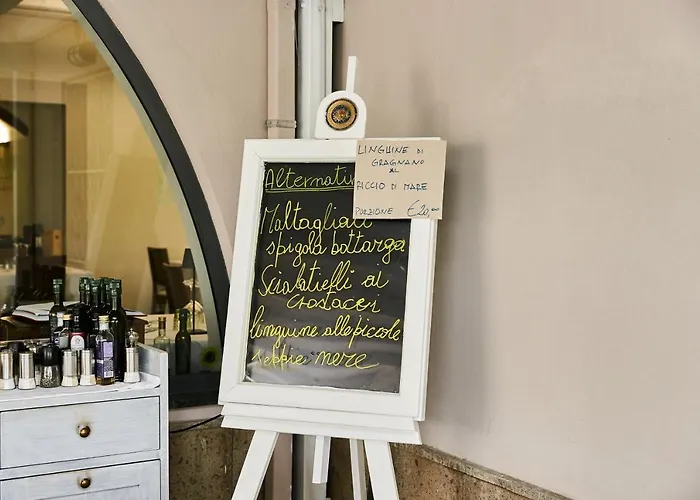 Alternativ
LINGUINE DI
GRAGNANO
AL
RICCIO DI MARE
PORZIONE €20,00
Maltagliati
spigola bottarga
Scialatielli ai
crostacei
linguine alle piccole
seppie nere